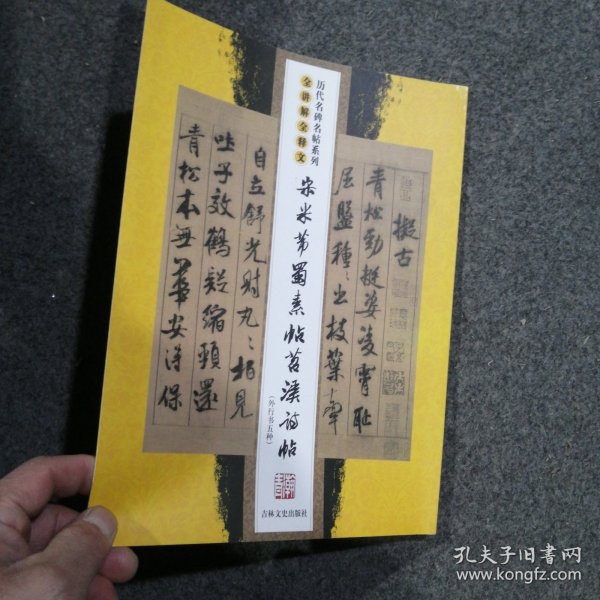 历代名碑名帖系列
全讲解全释文
宋米芾蜀素帖苕溪诗帖
(外行书五种)
吉林文史出版社
拟古
青松劲挺姿凌霄耻
屈盘种种出枝叶牵
自立舒光射丸丸柏见
吐子效鹤疑缩颈还
青松本无华安得保
孔夫子旧书网
www.kongfz.com